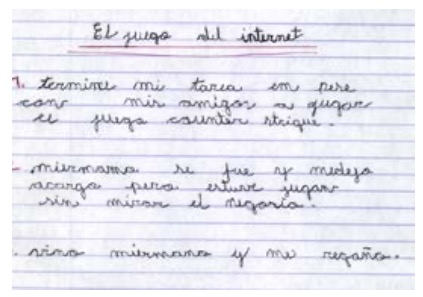 El juego del internet
1. termine mi tarea em pese
con mis amigos a gugar
el juego counter strique.
miermama se fue y medejo
acargo pero estuve jugano
sin mirar el negocio.
vino miermano y me regaño.